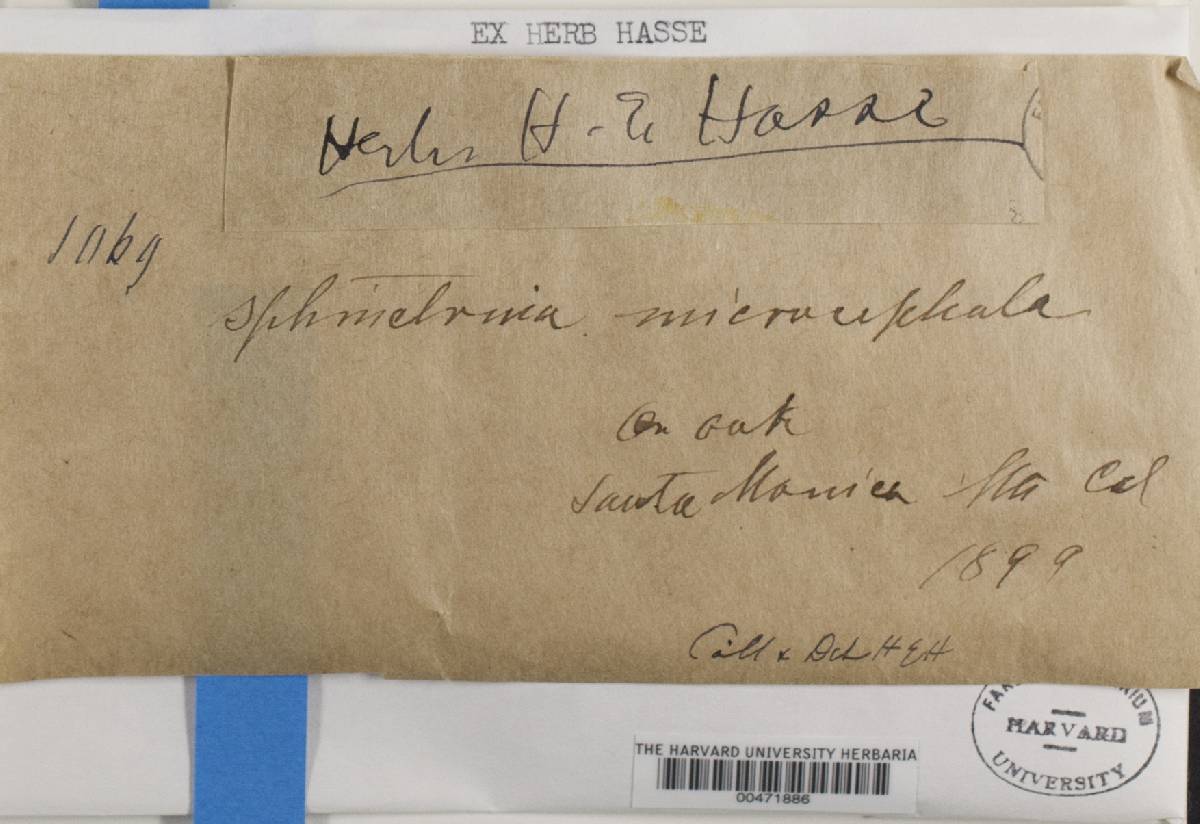 EX HERB HASSE
Herb H-E Hasse
1069
Sphinctrina microcephala
On oak
Santa Monica Mts Cal
1899
Coll & Det HEH
HARVARD
UNIVERSITY
THE HARVARD UNIVERSITY HERBARIA
00471886